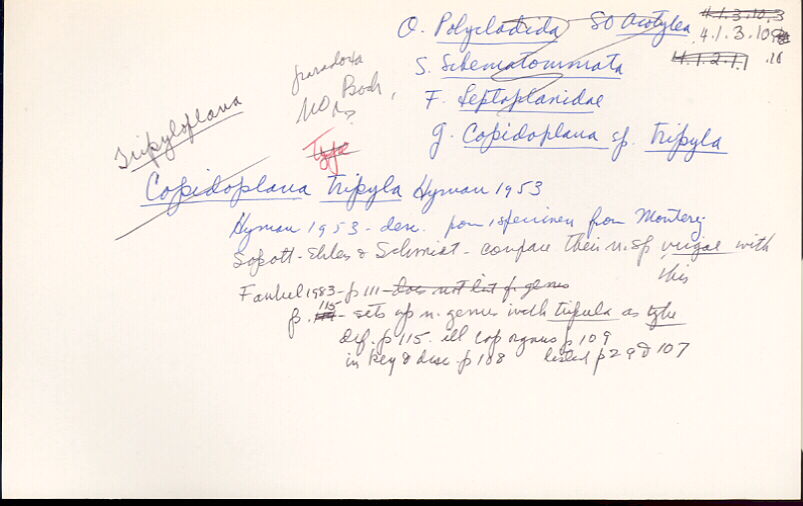 O. Polycladida SO Acotylea
4.1.3.10.3
4.1.3.10
4.1.2.1.1 .18
S. Schematommata
F. Leptoplanidae
g. Copidoplana sp. tripyla
paradoxa
Bock,
non?
Tripyloplana
Type
Copidoplana tripyla Hyman 1953
Hyman 1953 - desc. from 1 specimen from Monterey
Sopott-Ehlers & Schmidt - compare their n. sp with
this
Faubel 1983 - p 111 - does not list g. genus
p. 115 - sets up n. genus with tripula as type
Dif. p 115. ill cop organs p 109
in key & disc. p 108 listed p 29 & 107